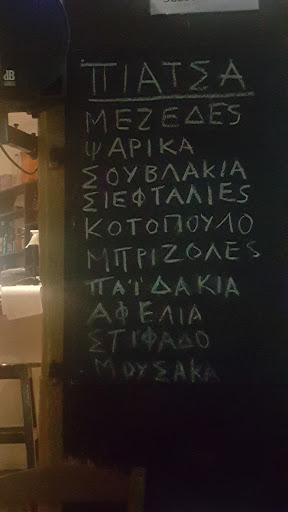 ΠΙΑΤΣΑ
ΜΕΖΕΔΕS
ΨΑΡΙΚΑ
ΣΟΥΒΛΑΚΙΑ
ΣΙΕΦΤΑΛΙΕS
ΚΟΤΟΠΟΥΛΟ
ΜΠΡΙΖΟΛΕS
ΠΑΪΔΑΚΙΑ
ΑΦΕΛΙΑ
ΣΤΙΦΑΔΟ
ΜΟΥΣΑΚΑ
dB